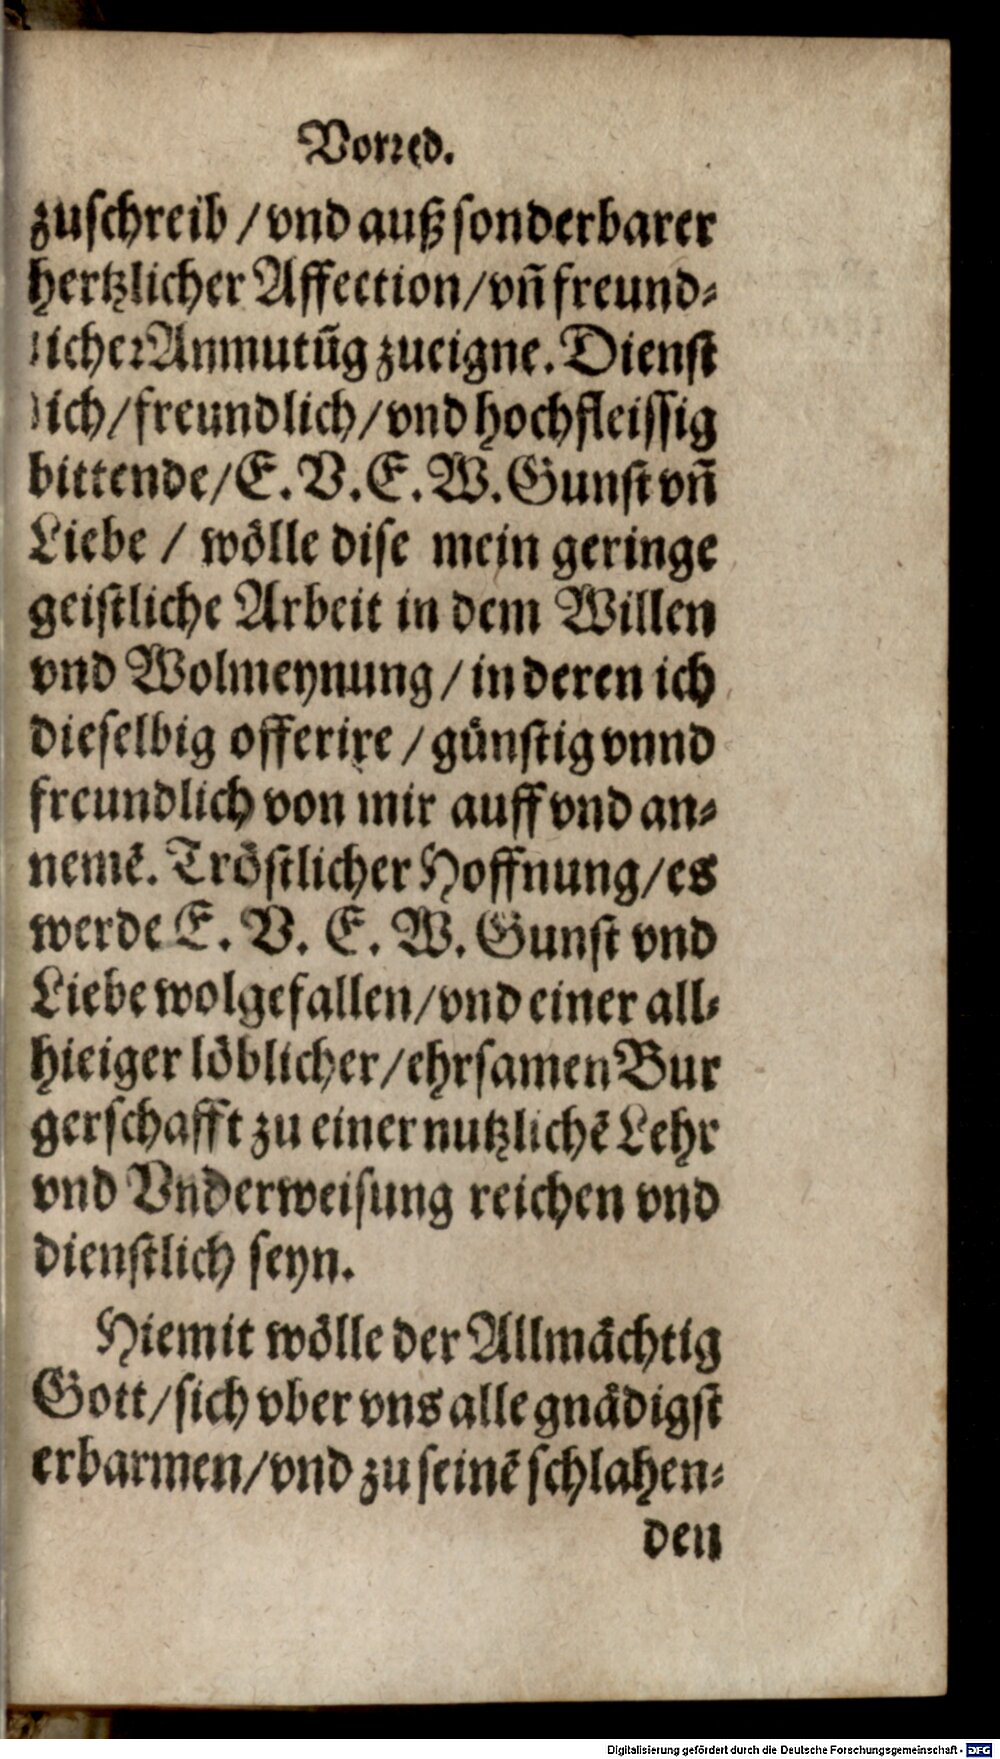 Vorred.
zuschreib / vnd auß sonderbarer
hertzlicher Affection / vñ freund-
licher Anmutũg zueigne. Dienst
lich / freundlich / vnd hochfleissig
bittende / E. V. E. W. Gunst vñ
Liebe / wölle dise mein geringe
geistliche Arbeit in dem Willen
vnd Wolmeynung / in deren ich
dieselbig offerire / günstig vnnd
freundlich von mir auff vnd an-
nemẽ. Tröstlicher Hoffnung / es
werde E. V. E. W. Gunst vnd
Liebe wolgefallen / vnd einer all-
hieiger löblicher / ehrsamen Bur
gerschafft zu einer nutzlichẽ Lehr
vnd Vnderweisung reichen vnd
dienstlich seyn.
Hiemit wölle der Allmächtig
Gott / sich vber vns alle gnädigst
erbarmen / vnd zu seinẽ schlahen-
den
Digitalisierung gefördert durch die Deutsche Forschungsgemeinschaft - DFG